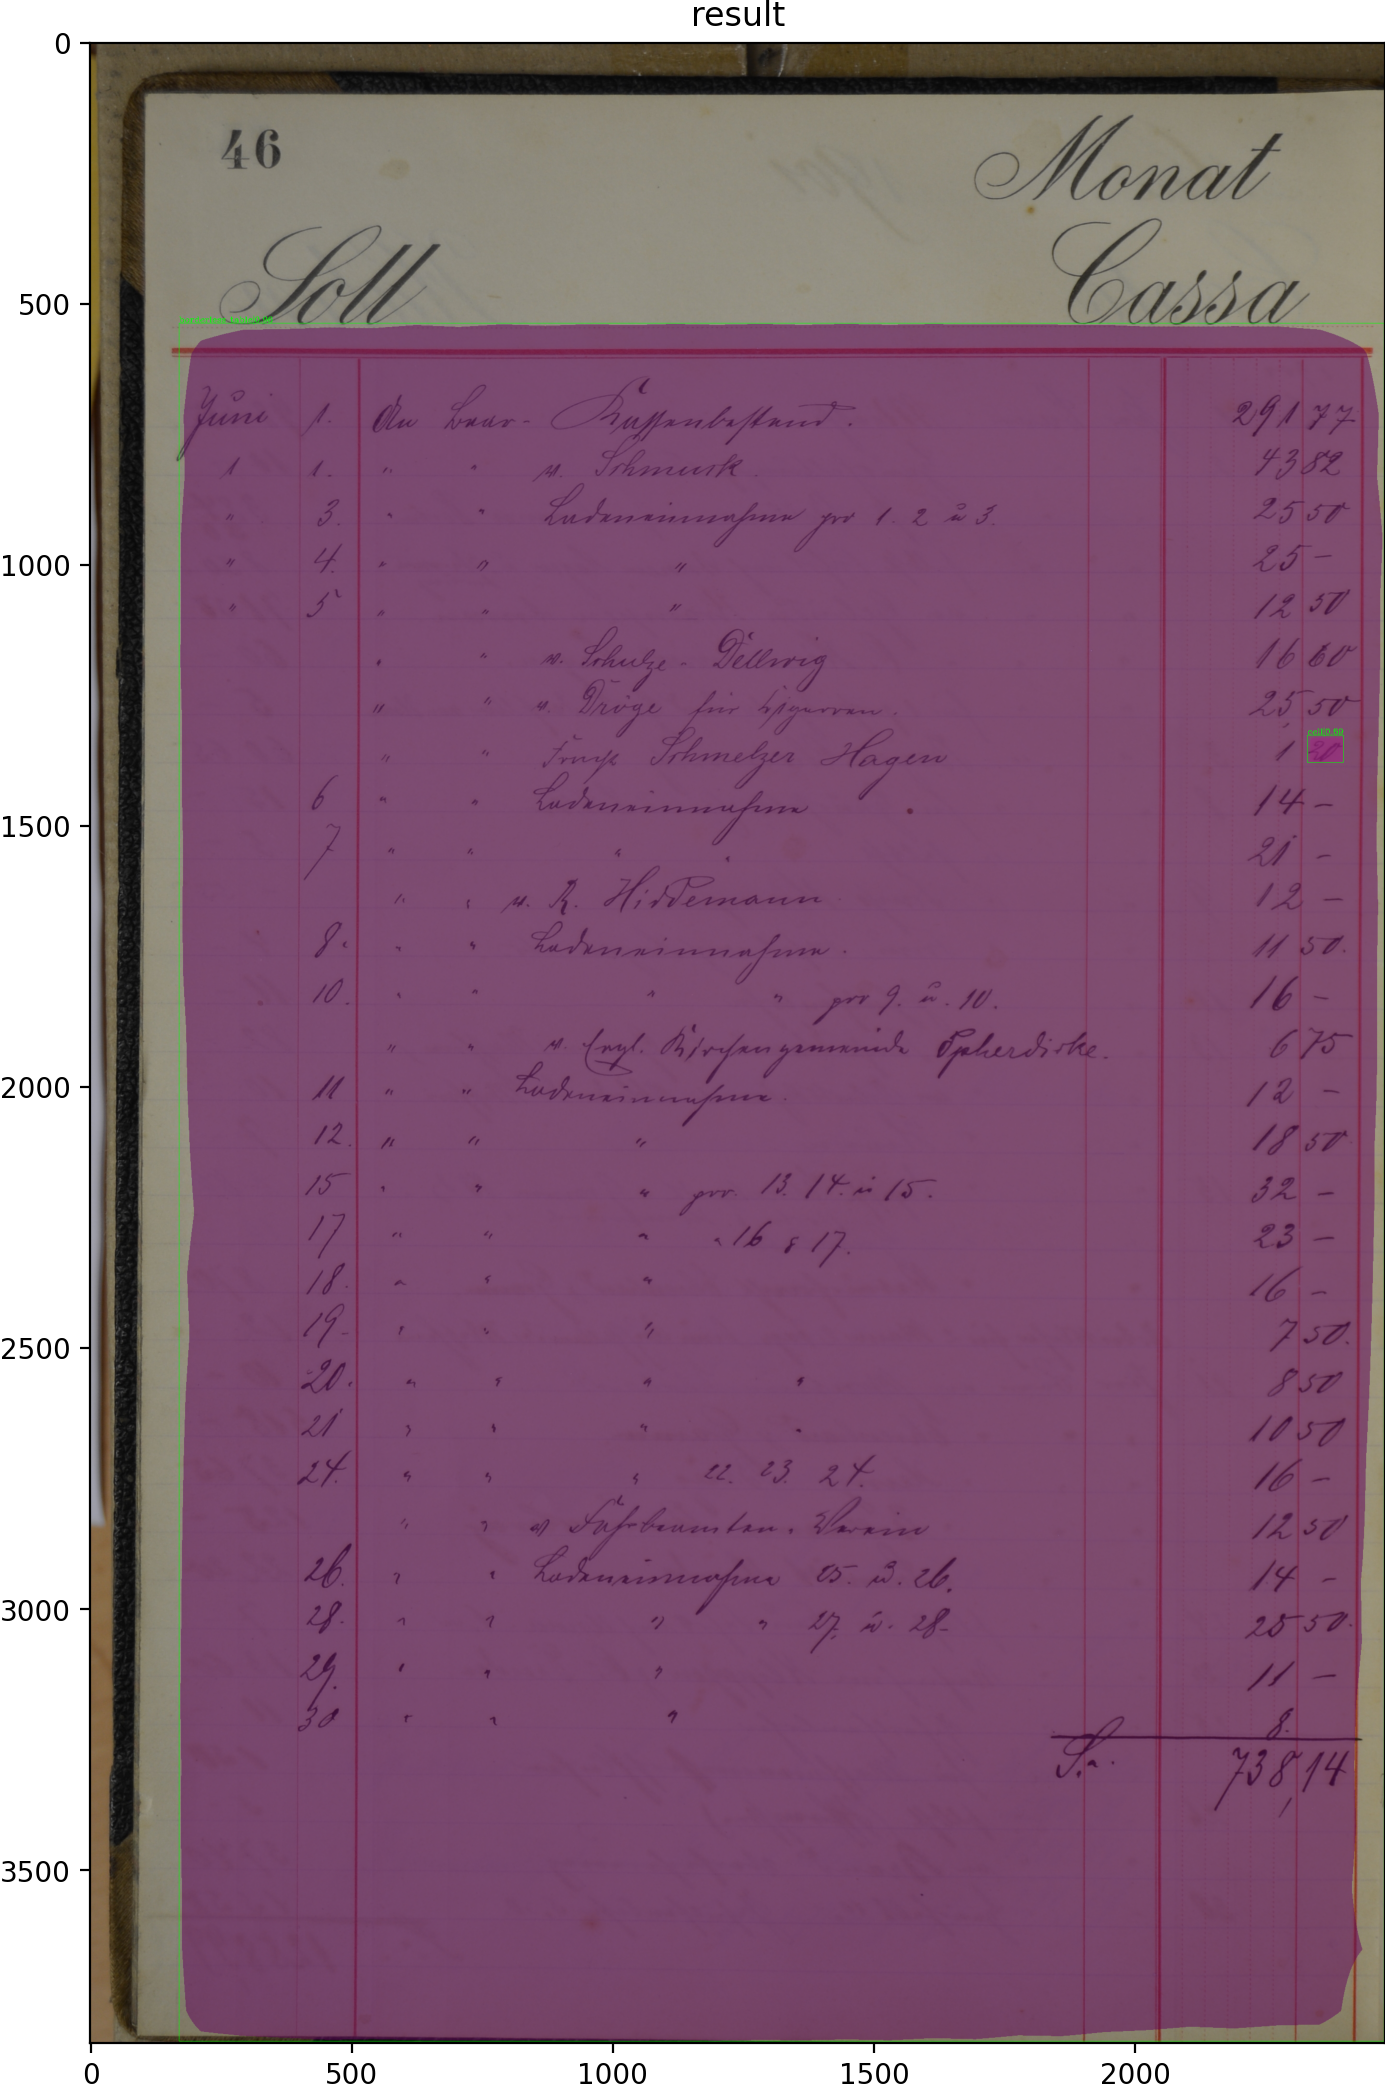 result
46
Monat
Soll
Cassa
Juni 1. An Baar- Kassenbestand. 291 77
1 1. " " v. Schmuck 43 82
" 3. " " Ladeneinnahme pro 1. 2 u 3. 25 50
" 4. " " " 25 -
" 5 " " " 12 50
" " v. Schulze - Dellwig 16 60
" " v. Dröge für Zigarren. 25,50
" " Schmelzer Hagen 1
6 " " Ladeneinnahme 14 -
7 " " " " 21 -
" " v. R. Hiddemann 12 -
8. " " Ladeneinnahme. 11 50.
10. " " " " pro 9. u. 10. 16 -
" " v. Evgl. Kirchengemeinde 6 75
11 " " Ladeneinnahme. 12 -
12. " " " 18 50
15 " " " pro. 13. 14. u 15. 32 -
17 " " " " 16 & 17. 23 -
18. " " " 16 -
19- " " " 7 50.
20. " " " " 8 50
21 " " " " 10 50
24. " " " 22. 23. 24. 16 -
" " v Fahrbeamten-Verein 12 50
26. " " Ladeneinnahme 25. u. 26. 14 -
28. " " " " 27. u. 28- 25 50.
29. " " " 11 -
30 " " " 8.
S.a. 738,14
0
500
1000
1500
2000
2500
3000
3500
0 500 1000 1500 2000